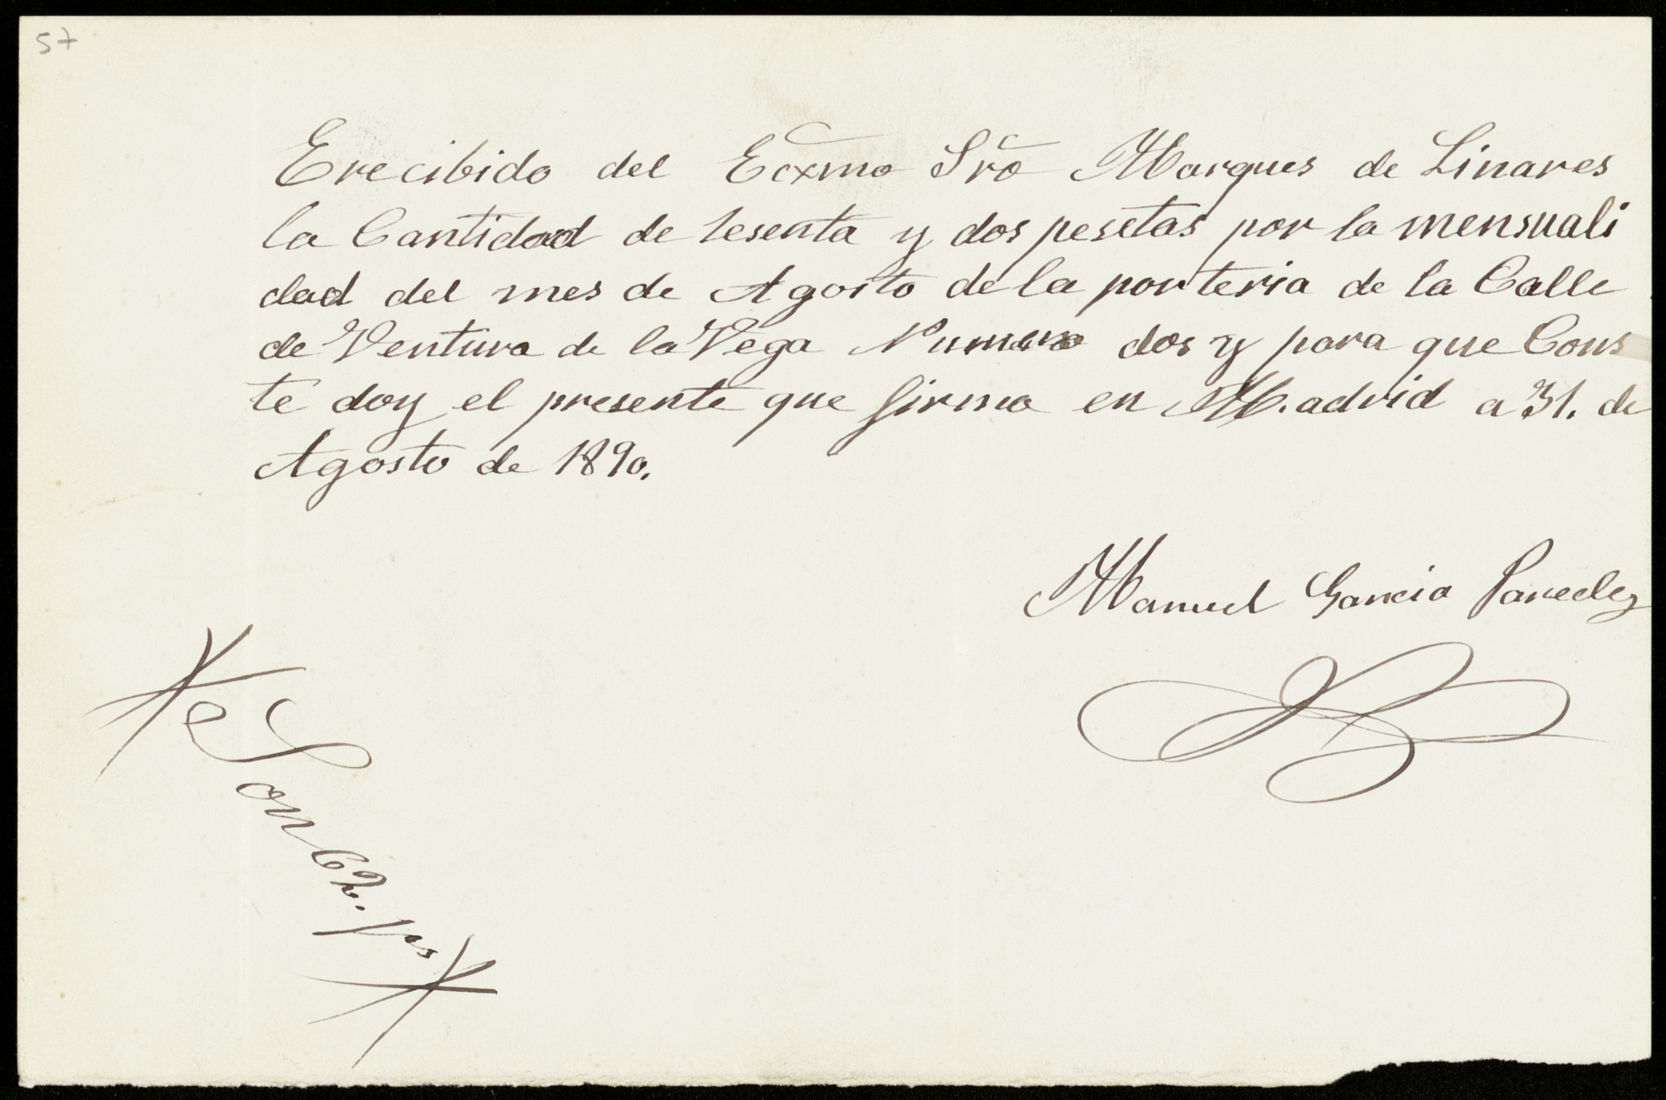 57
Erecibido del Ecxmo Sro Marques de Linares
la Cantidad de sesenta y dos pesetas por la mensuali
dad del mes de Agosto de la porteria de la Calle
de Ventura de la Vega Numero dos y para que Cons
te doy el presente que firmo en M.adrid a 31. de
Agosto de 1890.
Manuel Garcia Paredes
Son 62. ps